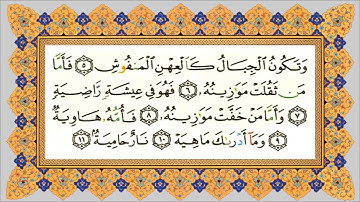 وَتَكُونُ ٱلْجِبَالُ كَٱلْعِهْنِ ٱلْمَنفُوشِ ٥ فَأَمَّا
مَن ثَقُلَتْ مَوَٰزِينُهُۥ ٦ فَهُوَ فِى عِيشَةٍ رَّاضِيَةٍ
٧ وَأَمَّا مَنْ خَفَّتْ مَوَٰزِينُهُۥ ٨ فَأُمُّهُۥ هَاوِيَةٌ
٩ وَمَآ أَدْرَىٰكَ مَا هِيَهْ ١٠ نَارٌ حَامِيَةٌۢ ١١